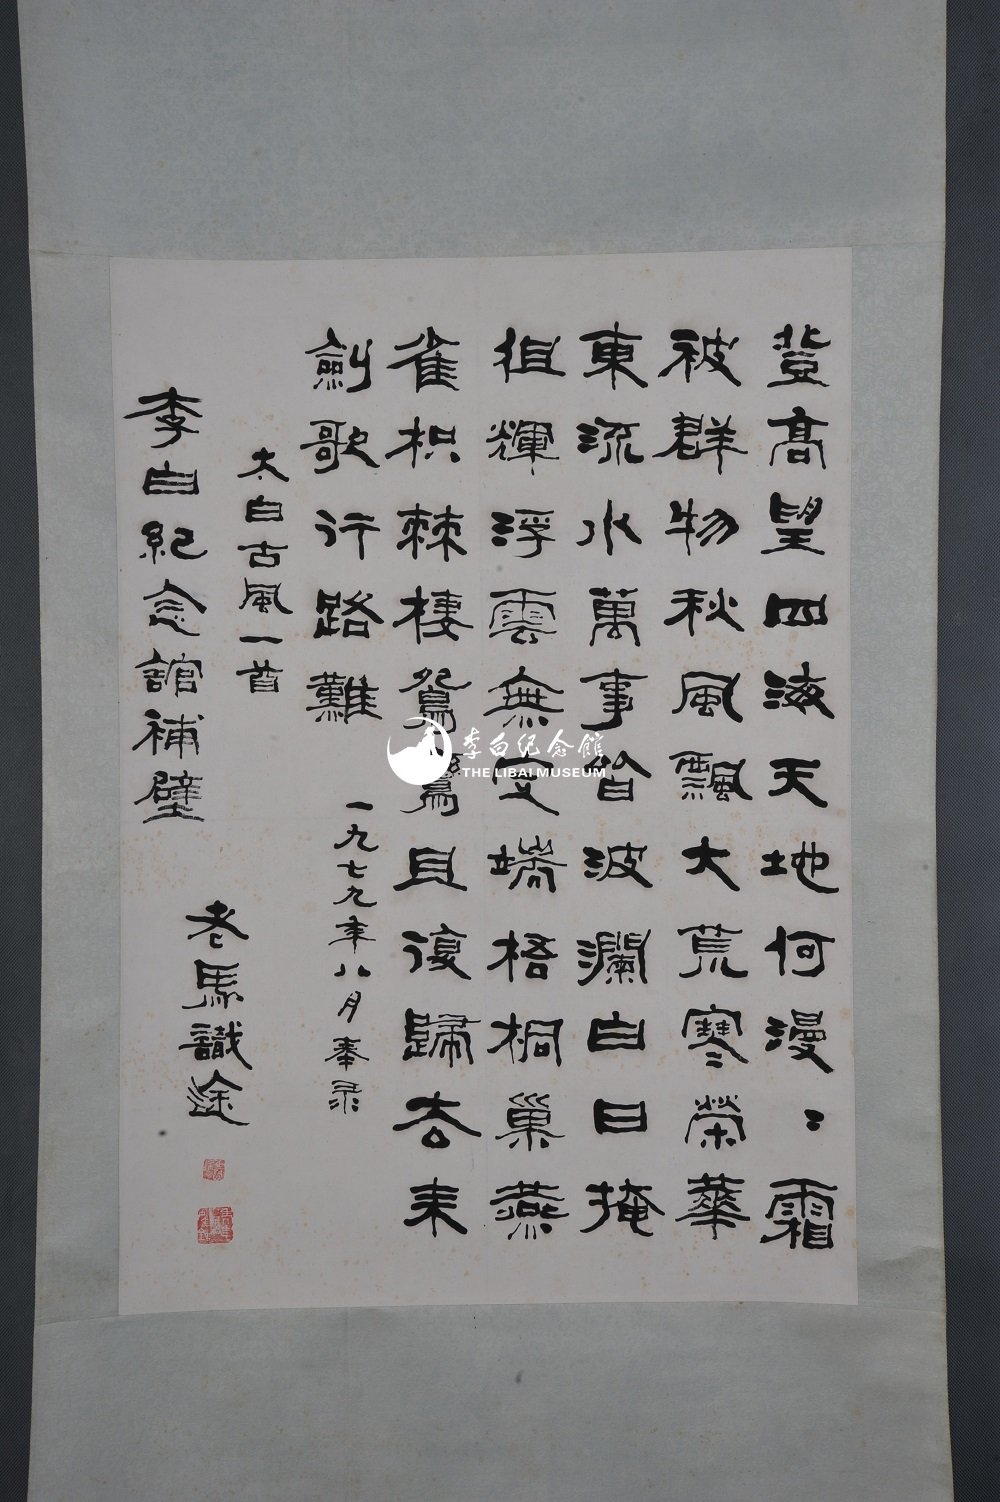 登高望四海天地何漫〻霜
被群物秋風飄大荒寒榮華
東流水萬事皆波瀾白日掩
徂輝浮雲無定端梧桐巢燕
雀枳棘棲鴛鸞且復歸去来
劍歌行路難
一九七九年八月奉录
太白古風一首
李白紀念館補壁
老馬識途
李白纪念館
THE LIBAI MUSEUM